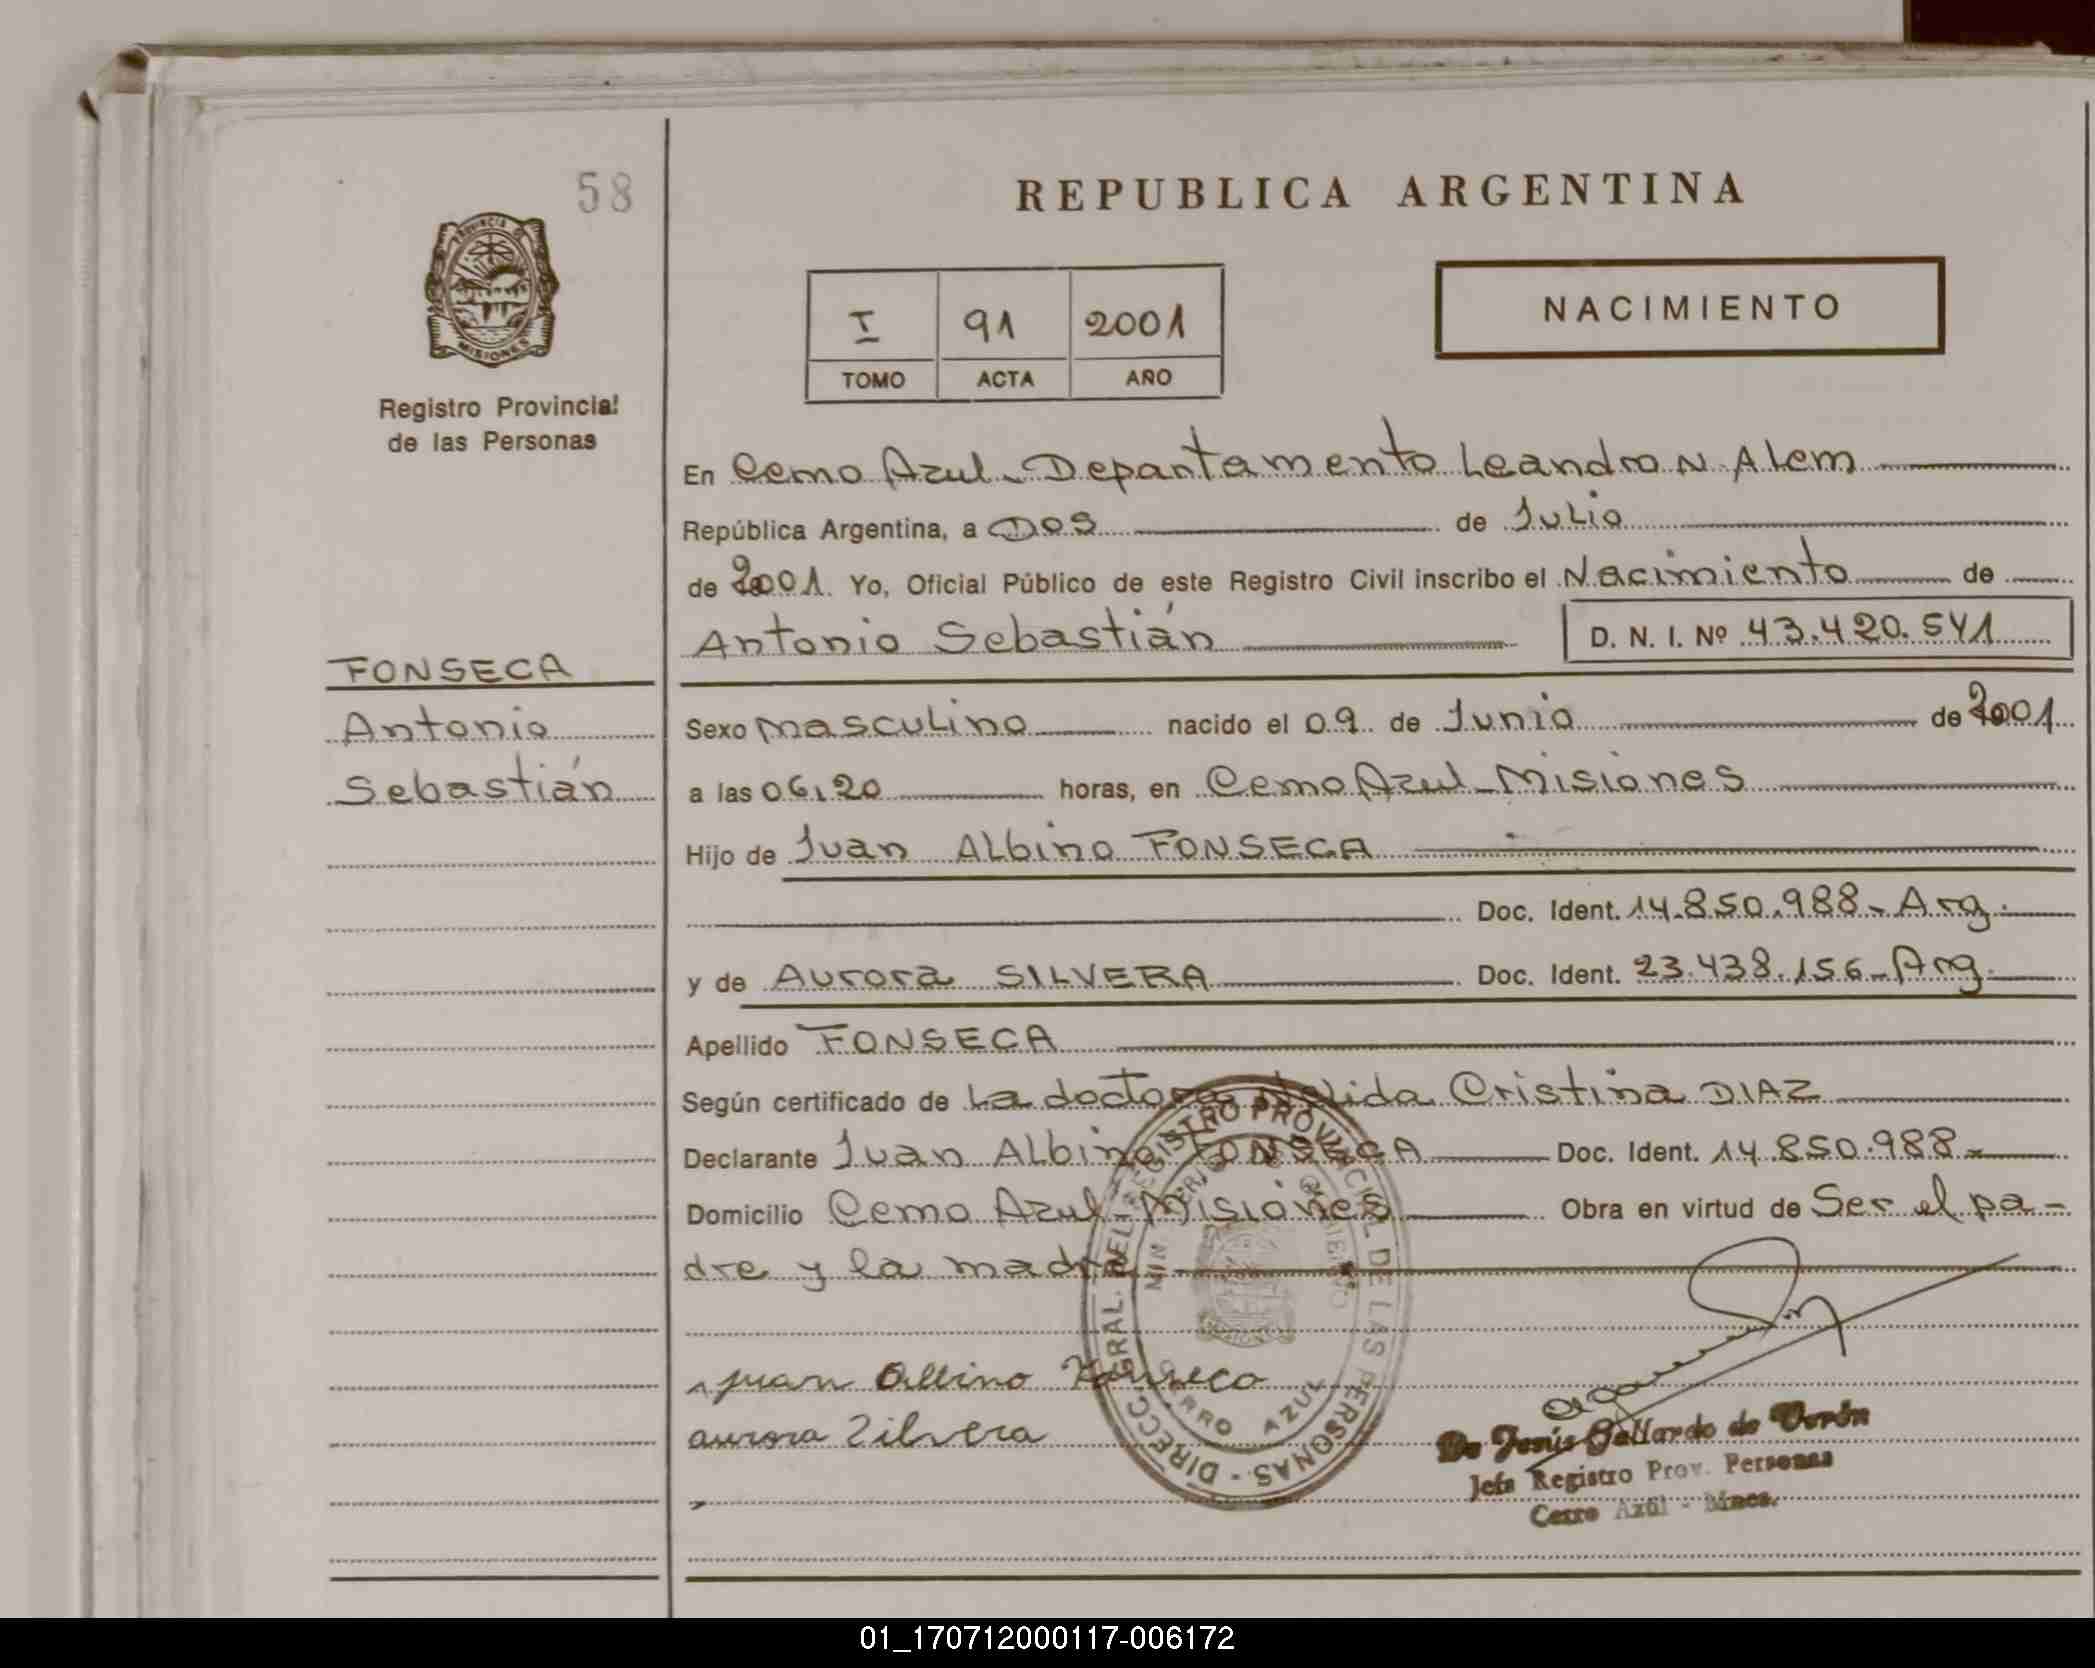 58
REPUBLICA ARGENTINA
PROVINCIA DE
MISIONES
Registro Provincial
de las Personas
I 91 2001
TOMO ACTA AÑO
NACIMIENTO
En Cerro Azul - Departamento Leandro N. Alem
República Argentina, a Dos de Julio
de 2001. Yo, Oficial Público de este Registro Civil inscribo el Nacimiento de
Antonio Sebastián D. N. I. Nº 43.420.541
FONSECA
Antonio
Sebastián
Sexo masculino nacido el 09 de Junio de 2001
a las 06,20 horas, en Cerro Azul - Misiones
Hijo de Juan Albino FONSECA
Doc. Ident. 14.850.988 - Arg.
y de Aurora SILVERA Doc. Ident. 23.438.156 - Arg.
Apellido FONSECA
Según certificado de La doctora Nelida Cristina DIAZ
Declarante Juan Albino FONSECA Doc. Ident. 14.850.988 -
Domicilio Cerro Azul Misiones Obra en virtud de Ser el pa-
dre y la madre
Juan Albino Fonseca
aurora Zilvera
DIRECC. GRAL. DEL REGISTRO PROVINCIAL DE LAS PERSONAS -
CERRO AZUL
De Jesús Gallardo de Verón
Jefa Registro Prov. Personas
Cerro Azul - Mnes.
01_170712000117-006172